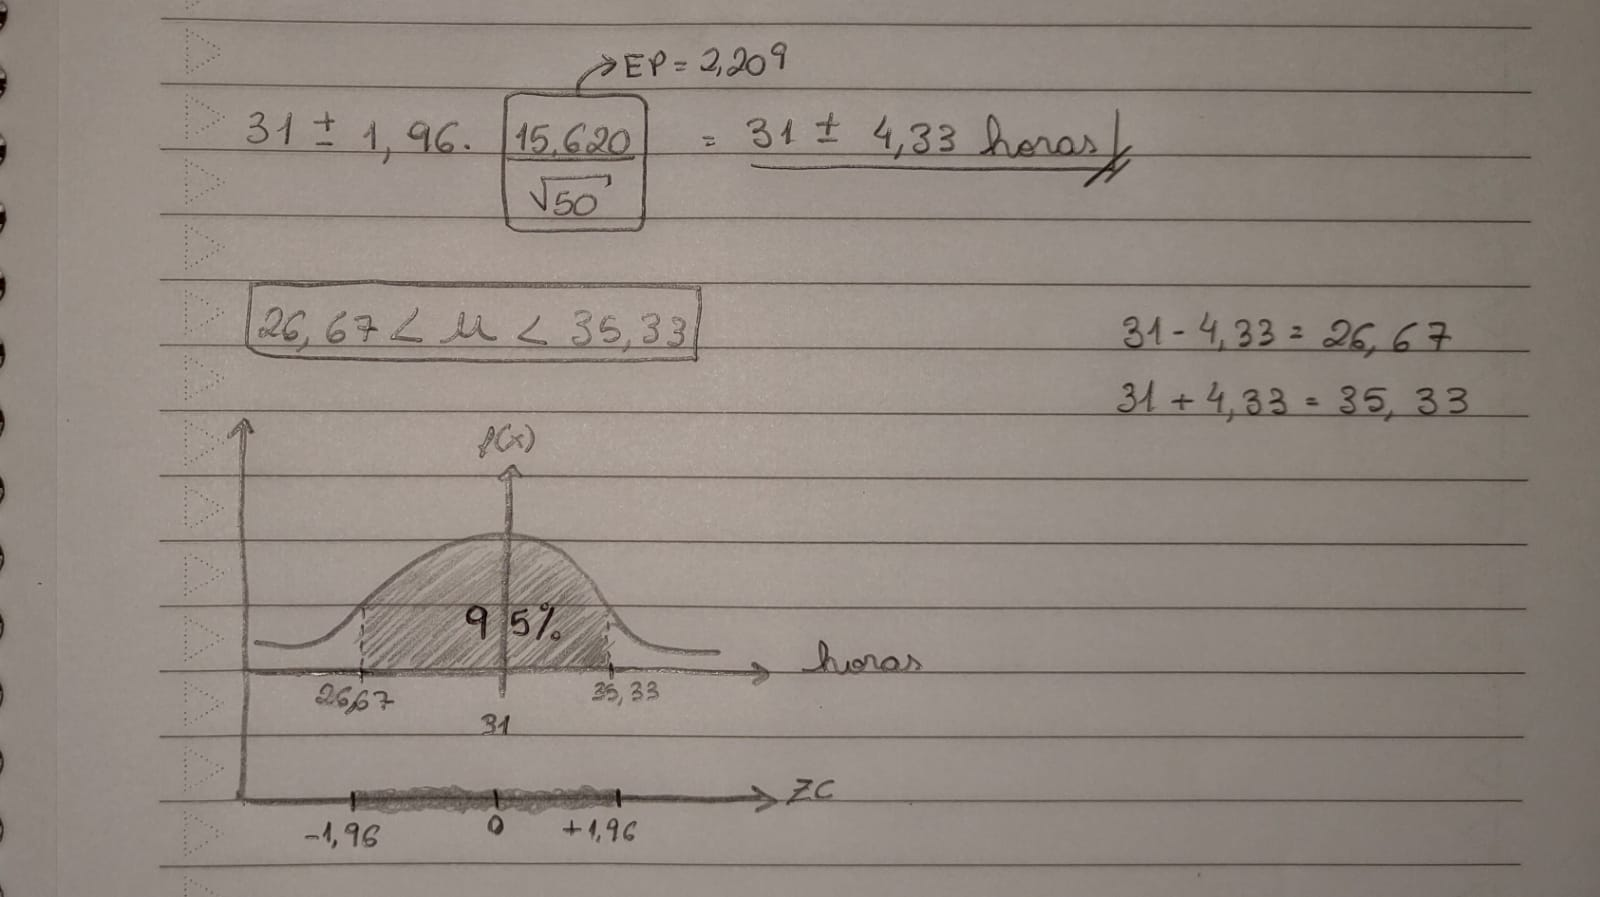 EP = 2,209
31 ± 1,96. 15,620 / √50 = 31 ± 4,33 horas
26,67 < μ < 35,33
31 - 4,33 = 26,67
31 + 4,33 = 35,33
f(x)
95%
horas
26,67 35,33
31
ZC
-1,96 0 +1,96